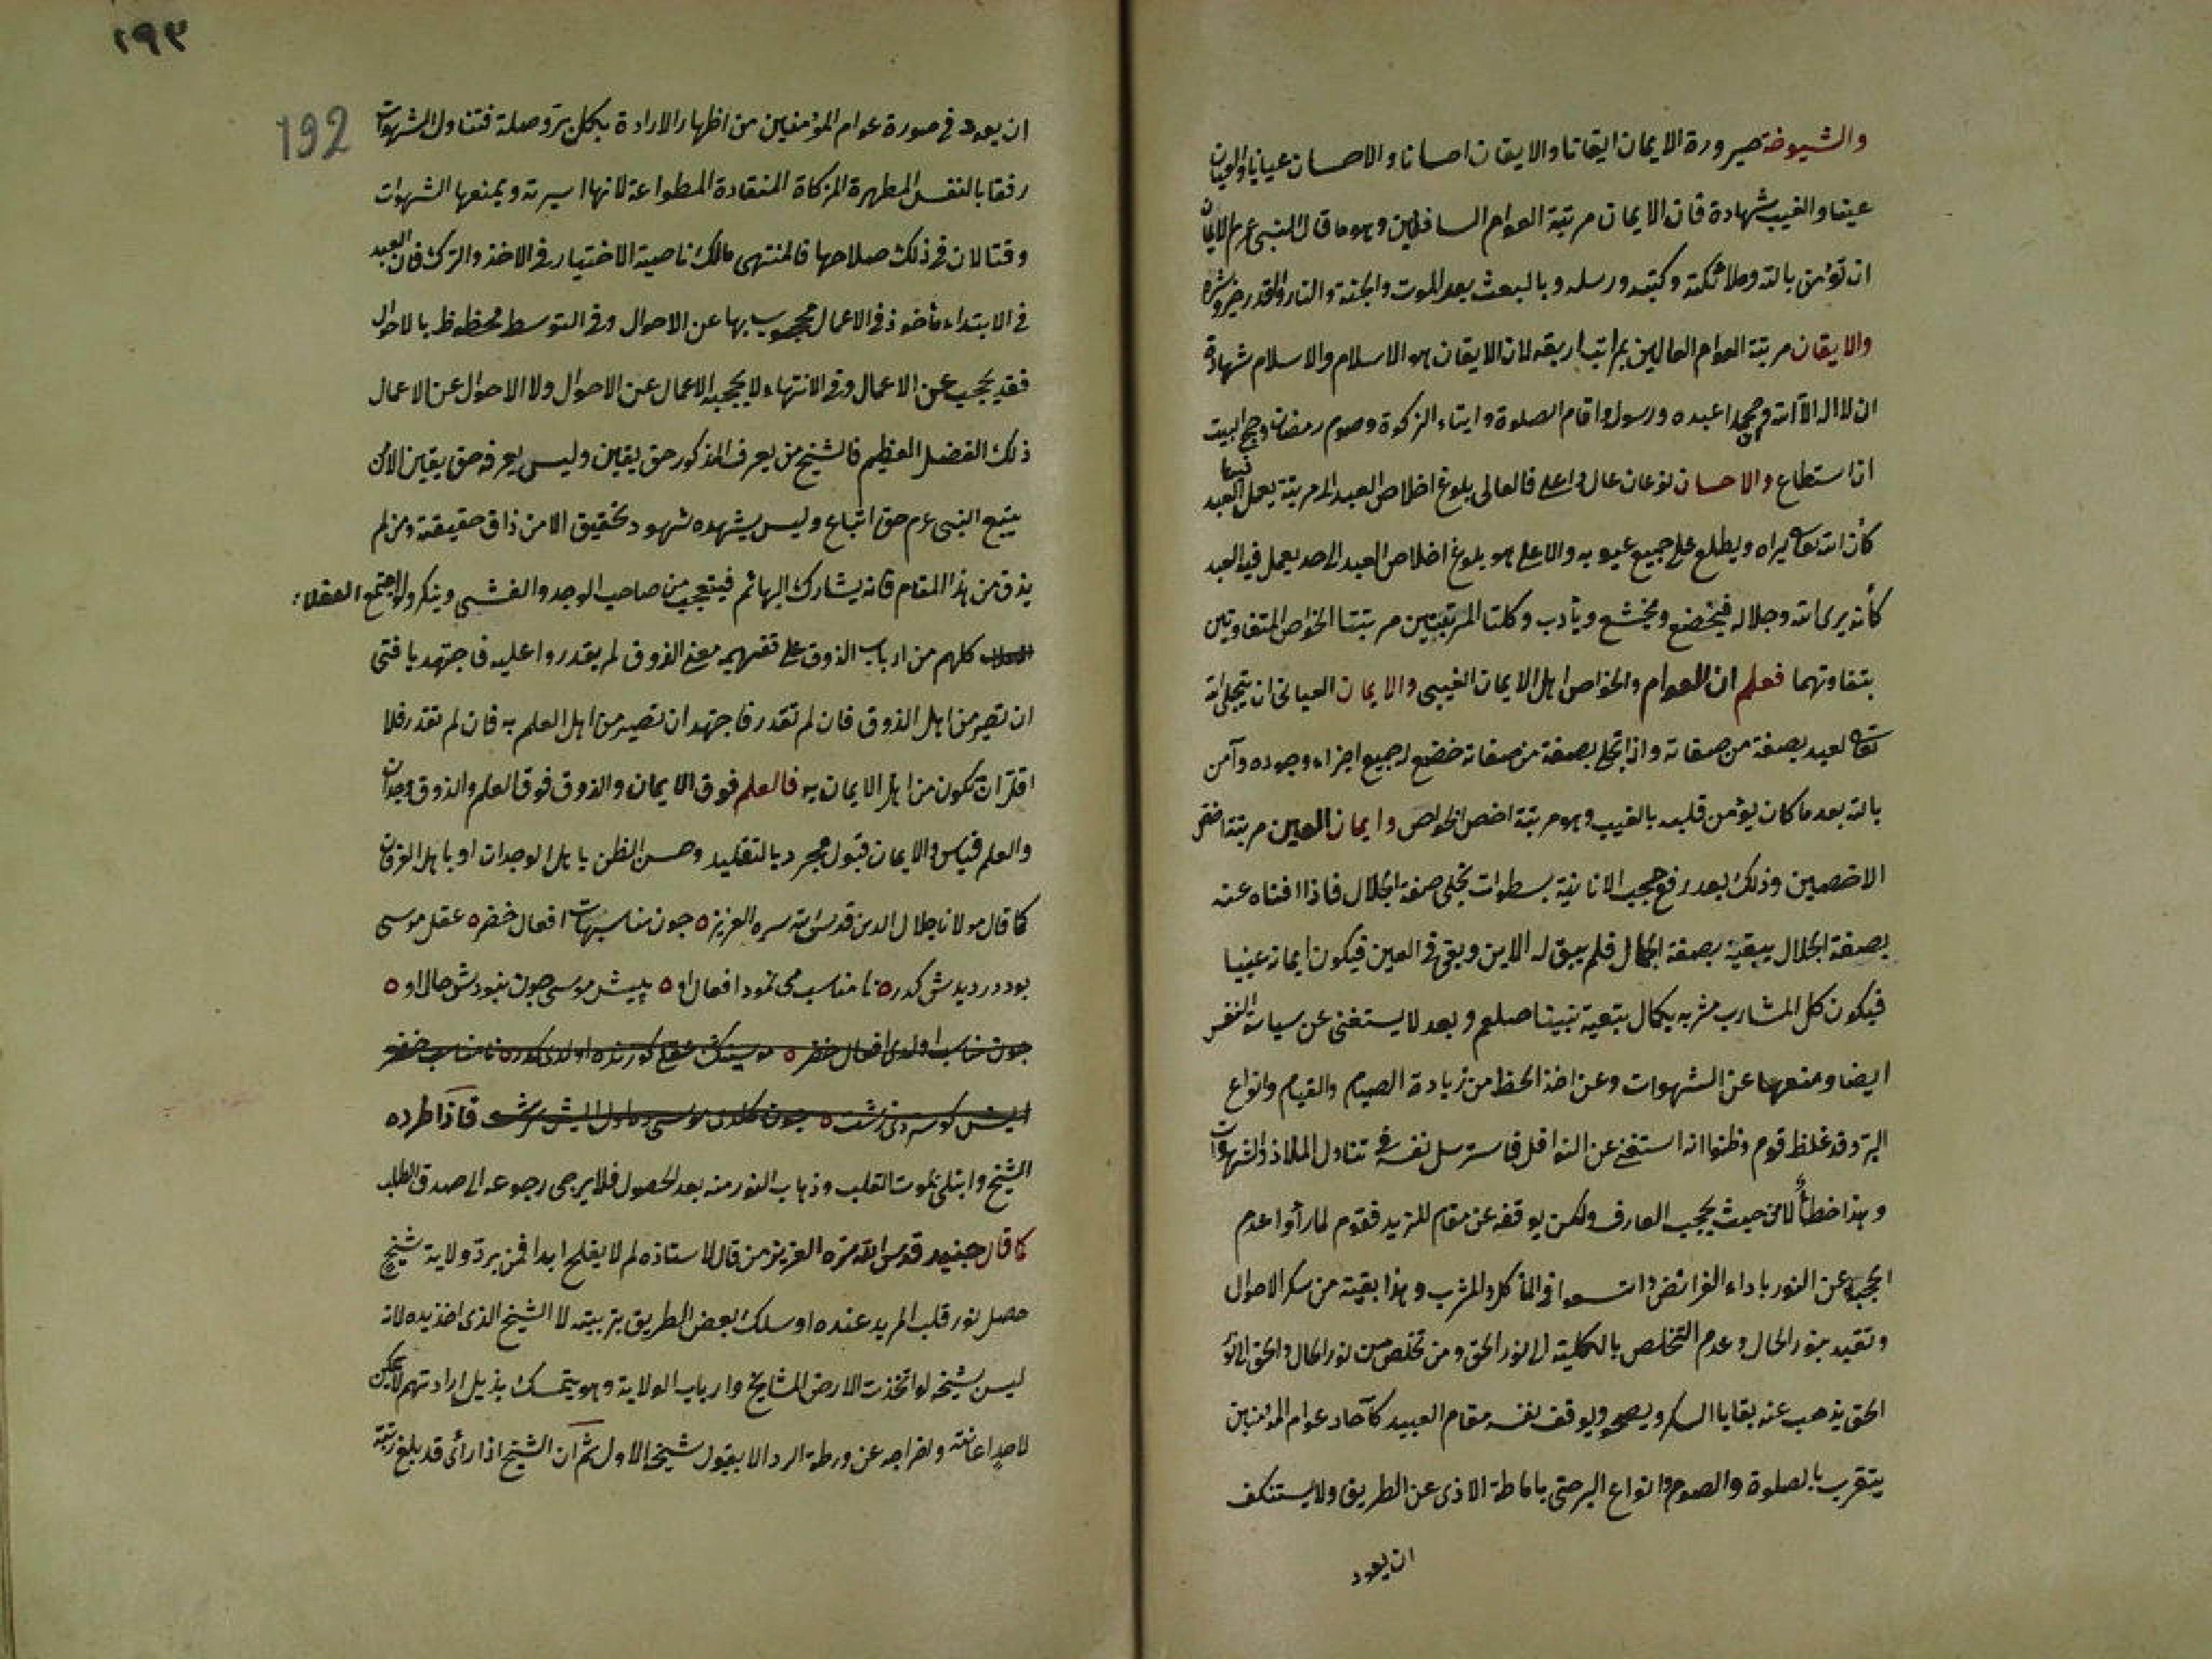 والشيوخة صيرورة الايمان ايقانا والايقان احسانا والاحسان عيانا والعيان
عينا والغيب شهادة فان الايمان مرتبة العوام السافلين وهو ما قال النبي عم الايمان
ان تؤمن بالله وملائكته وكتبه ورسله وبالبعث بعد الموت والجنة والنار والقدر خيره وشره
والايقان مرتبة العوام العالين بمراتب اربعة لان الايقان هو الاسلام والاسلام شهادة
ان لا اله الا الله ومحمدا عبده ورسوله واقام الصلوة وايتاء الزكوة وصوم رمضان وحج البيت
ان استطاع والاحسان نوعان عال واعلى فالعالى بلوغ اخلاص العبد الى مرتبة يعمل فيها العبد
كأن الله تعالى يراه ويطلع على جميع عيوبه والاعلى هو بلوغ اخلاص العبد الى حد يعمل فيه العبد
كأنه يرى الله وجلاله فيخضع ويخشع ويأدب وكلتا المرتبتين مرتبتا الخواص المتفاوتين
بتفاوتهما فعلم ان العوام والخواص اهل الايمان الغيبى والايمان العيانى ان يتجلى الله
تعالى لعبد بصفة من صفاته واذا تجلى بصفة من صفاته خضع له جميع اجزاء وجوده وآمن
بالله بعد ما كان يؤمن قلبه بالغيب وهو مرتبة اخص الخواص وايمان العين مرتبة اخص
الاخصين وذلك بعد رفع حجب الانانية بسطوات تجلى صفة الجلال فاذا افناه عنه
بصفة الجلال يبقيه بصفة الجمال فلم يبق له الاين وبقى فى العين فيكون ايمانه عينيا
فيكون كل المشارب مشربه بكمال تبعية نبينا صلعم وبعد لا يستغنى عن سياسة النفس
ايضا ومنعها عن الشهوات وعن اخذ الحظ من زيادة الصيام والقيام وانواع
البر وقد غلط قوم وظنوا انه استغنى عن النوافل فاسترسل نفسه فى تناول الملاذ والشهوات
وهذا خطأ لا من حيث يحجب العارف ولكن يوقفه عن مقام المزيد فقوم لما رأوا عدم
الحجب عن النور باداء الفرائض واتسعوا فى المأكل والمشرب وهذا بقية من سكر الاحوال
وتقيد بنور الحال وعدم التخلص بالكلية الى نور الحق ومن تخلص من نور الحال والحق الى نور
الحق يذهب عنه بقايا السكر ويصحو ويوقف نفسه مقام العبيد كآحاد عوام المؤمنين
يتقرب بالصلوة والصوم وانواع البر حتى باماطة الاذى عن الطريق ولا يستنكف
ان يعود
١٩٢
192
ان يعود فى صورة عوام المؤمنين من اظهار الارادة بكل بر وصلة فتناول الشهوات
رفقا بالنفس المطهرة المزكاة المنقادة المطواعة لانها اسيرته ويمنعها الشهوات
وقتا لان فى ذلك صلاحها فالمنتهى مالك ناصية الاختيار فى الاخذ والترك فان العبد
فى الابتداء مأخوذ فى الاعمال محجوب بها عن الاحوال وفى التوسط محظوظ بالاحوال
فقد يحجب عن الاعمال وفى الانتهاء لا يحجبه الاعمال عن الاحوال ولا الاحوال عن الاعمال
ذلك الفضل العظيم فالشيخ من يعرف المذكور حق يقين وليس يعرفه حق يقين الا من
يتبع النبى عم حق اتباع وليس يشهده شهود تحقيق الا من ذاق حقيقته ومن لم
يذق من هذا المقام فانه يشارك البهائم فيتعجب من صاحب الوجد والغشى وينكر ولو اجتمع العقلاء
كلهم من ارباب الذوق على تفهيمه معنى الذوق لم يقدروا عليه فاجتهد يا فتى
ان تصير من اهل الذوق فان لم تقدر فاجتهد ان تصير من اهل العلم به فان لم تقدر فلا
اقل ان تكون من اهل الايمان به فالعلم فوق الايمان والذوق فوق العلم والذوق وجدان
والعلم قياس والايمان قبول مجرد بالتقليد وحسن الظن باهل الوجدان او باهل العرفان
كما قال مولانا جلال الدين قدس الله سره العزيز ٥ جون مناسبهات افعال خضر ٥ عقل موسى
بود در ديدش كدر ٥ نا مناسب مى نمود افعال او ٥ پيش موسى جون نبودش حال او ٥
فاذا طرده
الشيخ وابتلى بموت القلب وذهاب النور منه بعد الحصول فلا يرجى رجوعه الى صدق الطلب
كما قال جنيد قدس الله سره العزيز من قال لاستاذه لم لا يفلح ابدا فمن يرد ولاية شيخ
حصل نور قلب المريد عنده او سلك بعض الطريق بتربيته لا الشيخ الذى اخذ يده لانه
ليس بشيخه لو اتخذت الارض المشايخ وارباب الولاية وهو يتمسك بذيل ارادتهم لا يمكن
لاحد اعانته واخراجه عن ورطة الرد الا بقبول شيخه الاول ثم ان الشيخ اذا رأى قد بلغ رتبة